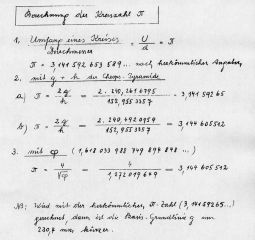 Berechnung der Kreiszahl π
1. Umfang eines Kreises / Durchmesser = U / d = π
π = 3,141 592 653 589 ... nach herkömmlichen Angaben,
2. mit g + h der Cheops-Pyramide
a.) π = 2g / h = 2. 240,261 6795 / 152,955 3357 = 3,141592 65
b.) π = 2g / h = 2. 240,492 0959 / 152,955 3357 = 3,144605512
3. mit φ (1,618 033 988 749 894 848 ...)
π = 4 / √φ = 4 / 1,272 019 649 = 3,144 605 512
NB; Wird mit der herkömmlichen π-Zahl (3,14159265...)
gerechnet, dann ist die Basis-Grundlinie g um
230,4 mm kürzer.